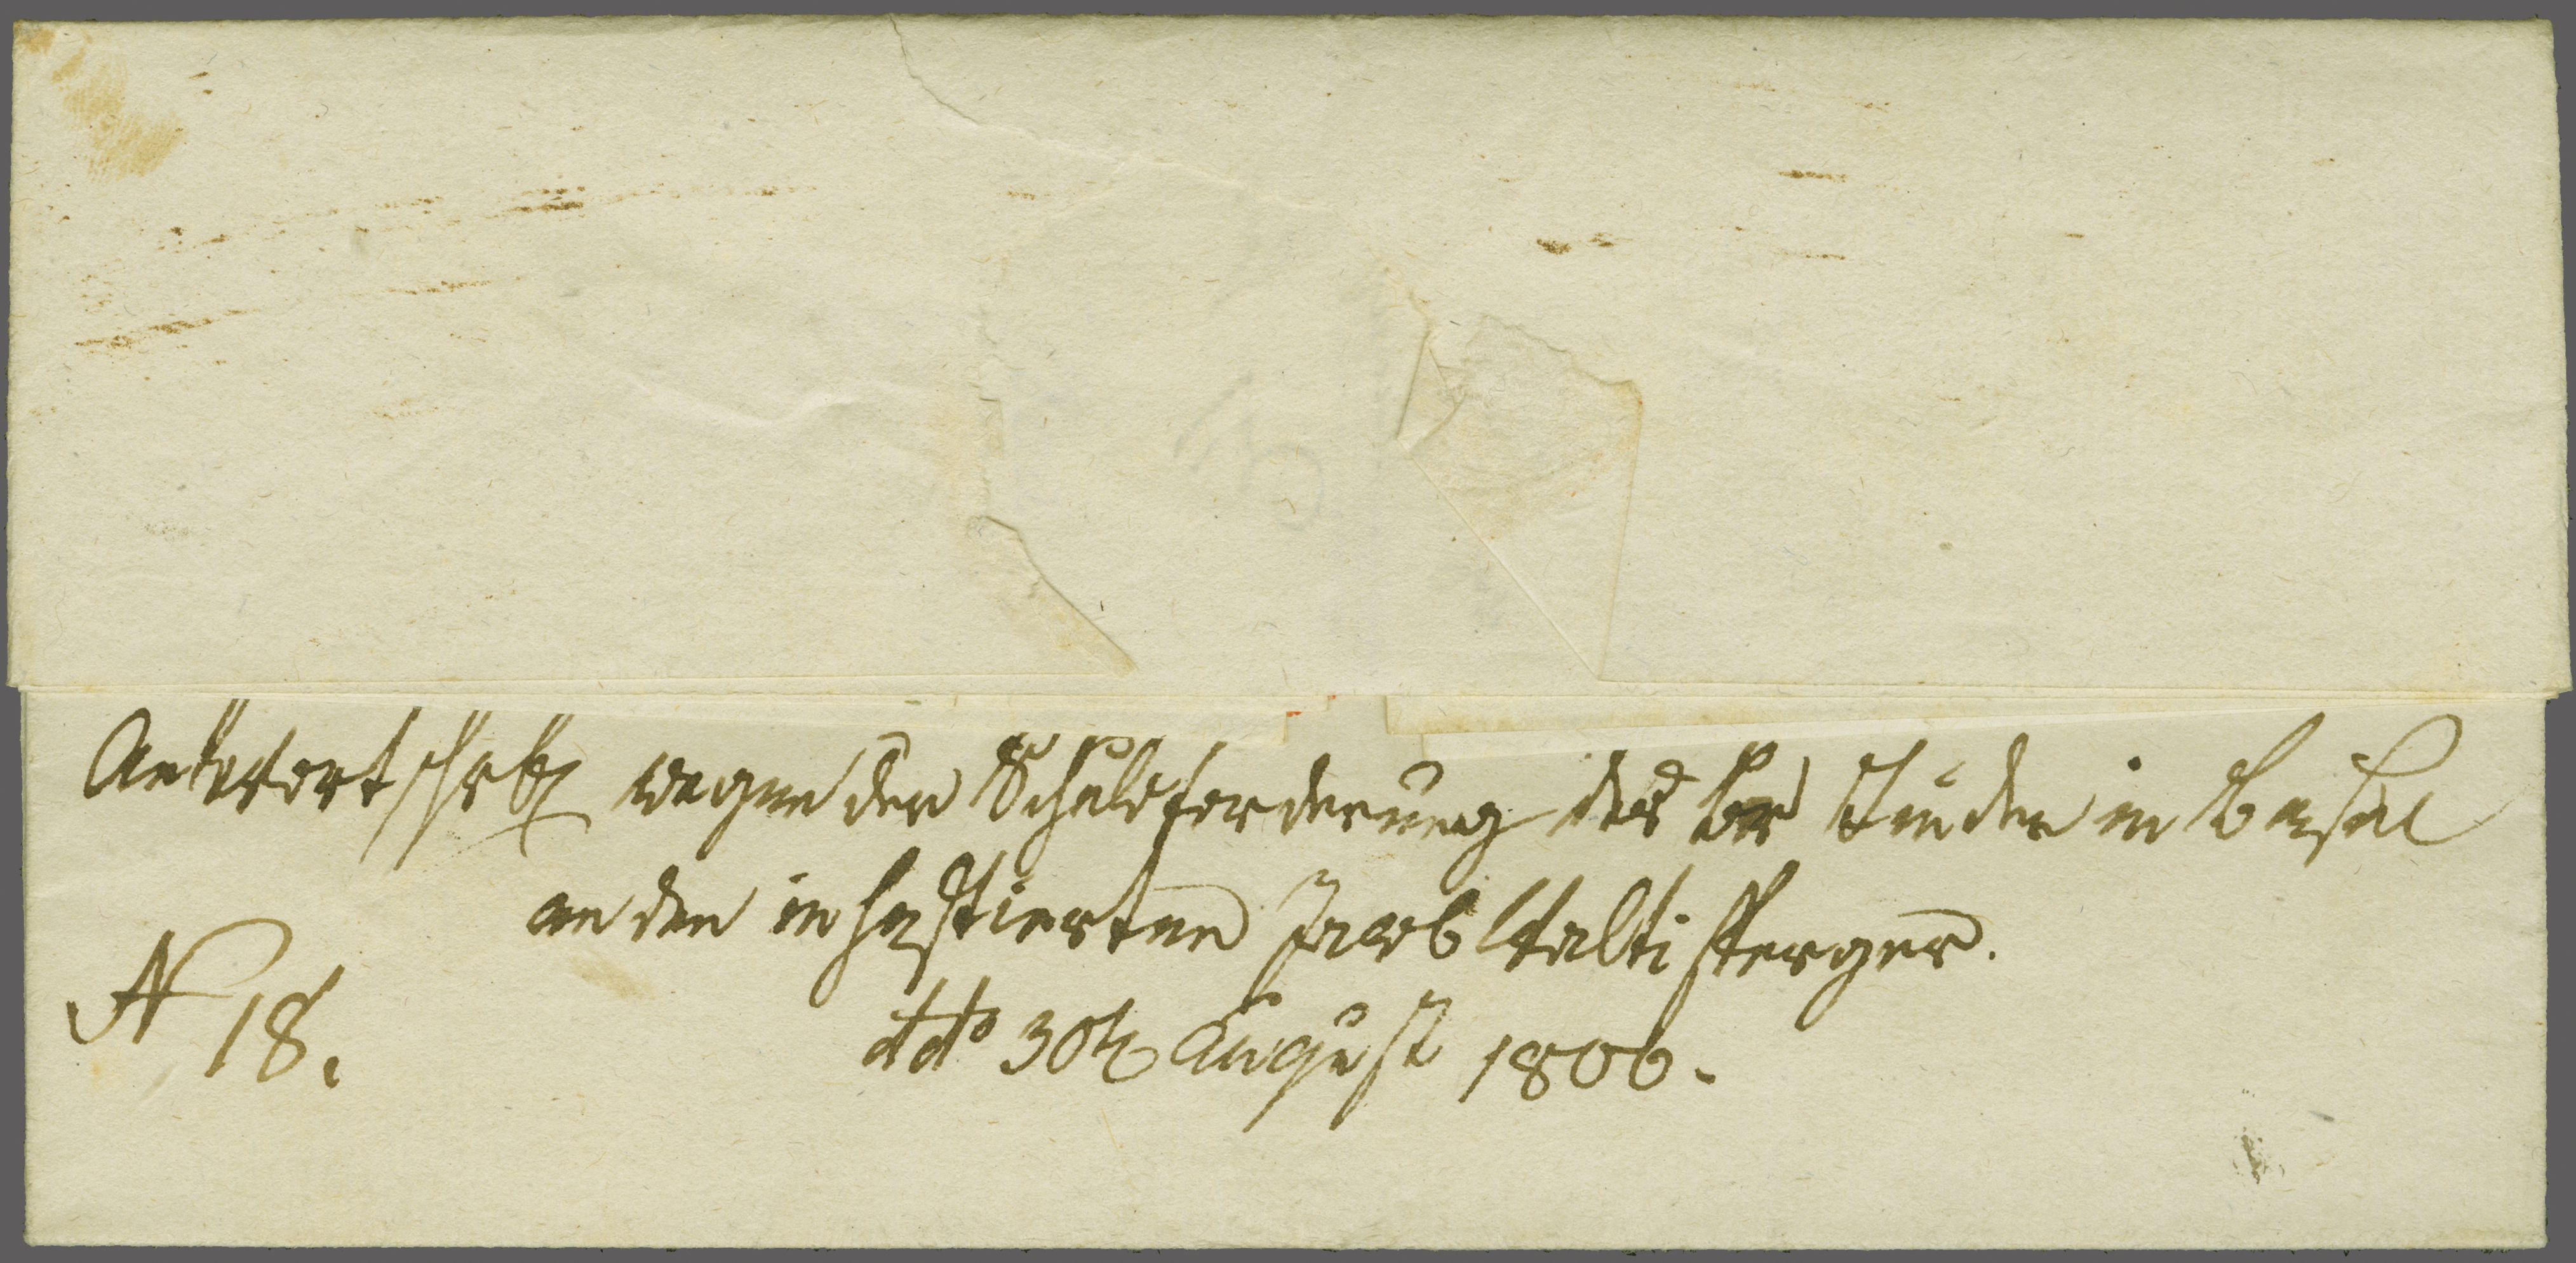 Antwortschrbn wegen der Schuldforderung des Hr Studer in Basel
an den inhaftierten Jacob
N 18.
ddo 30t August 1806.